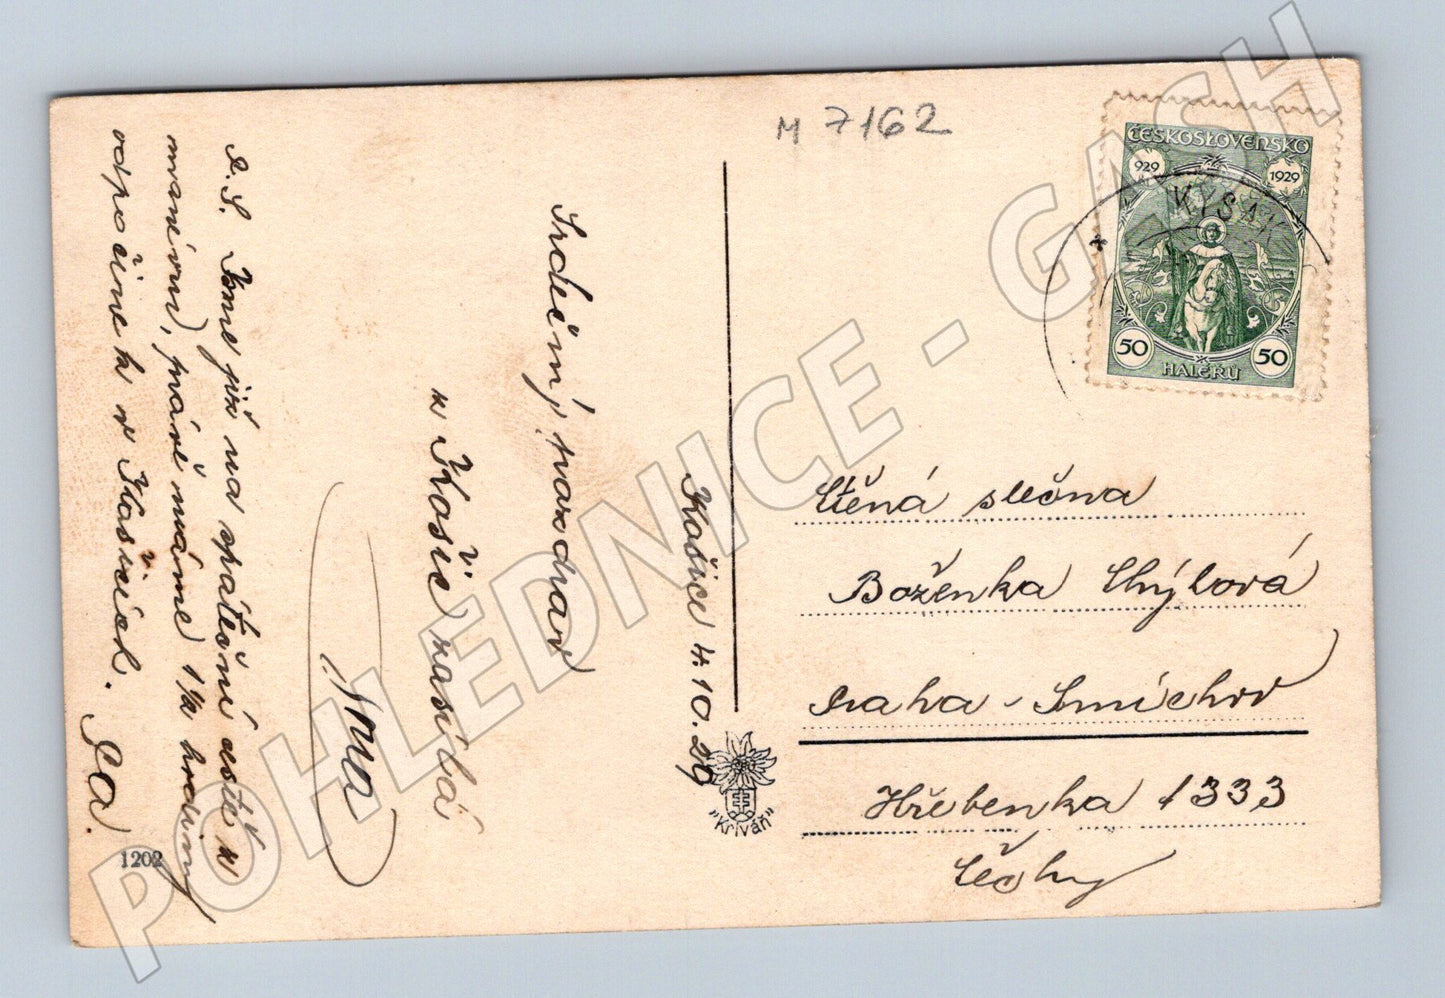 M 7162
ČESKOSLOVENSKO
929 1929
KYSAK
50 50
HALÉŘŮ
Košice 4.10.29
Srdečný pozdrav
z Košic zasílá
P.S. Jsme již na zpáteční cestě z
právě máme 1½ hodiny
odpočinek v Košicích.
Ctěná slečna
Boženka Chýlová
Praha - Smíchov
Hřebenka 1333
Čechy
"Kriváň"
1202
POHLEDNICE - GASH